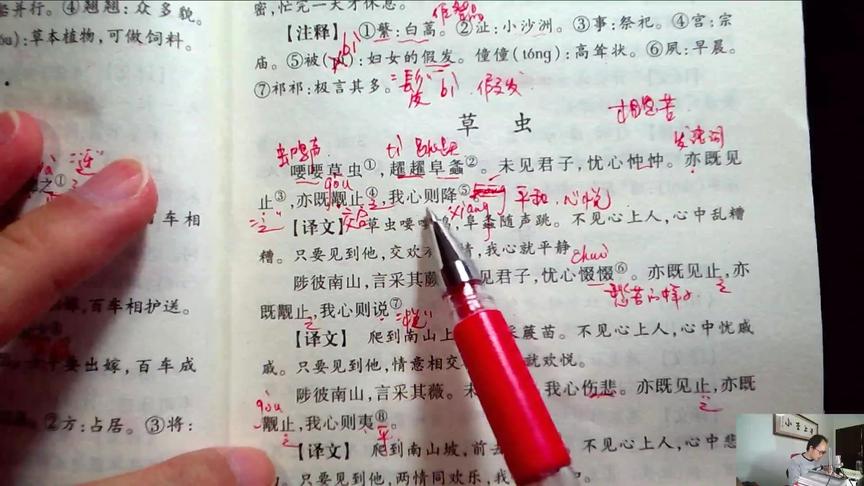 蹇并行。④翘翘：众多貌。
：草本植物，可做饲料。
密，忙完一天才休息。
【注释】①蘩：白蒿。②沚：小沙洲。③事：祭祀。④宫：宗
庙。⑤被(bì)：妇女的假发。僮僮(tóng)：高耸状。⑥夙：早晨。
⑦祁祁：极言其多。
bì 假发
相思苦
草虫
发语词
虫鸣声 tì
喓喓草虫①，趯趯阜螽②。未见君子，忧心忡忡。亦既见
gòu
止③，亦既觏止④，我心则降⑤
之 交合 xiáng 平和、心悦
【译文】草虫喓喓鸣，阜螽随声跳。不见心上人，心中乱糟
糟。只要见到他，交欢
情，我心就平静。
chuò
陟彼南山，言采其蕨
见君子，忧心惙惙⑥。亦既见止，亦
愁苦的样子 之
既觏止，我心则说⑦
之 "悦"
【译文】爬到南山上
采蕨苗。不见心上人，心中忧戚
戚。只要见到他，情意相交
就欢悦。
陟彼南山，言采其薇。未
我心伤悲。亦既见止，亦既
gòu 之
觏止，我心则夷⑧。
之 平
【译文】爬到南山坡，前去
不见心上人，心中悲
。只要见到他，两情同欢乐，我
"迓"
之①
百车相
，百车相护送。
要出嫁，百车成
②方：占居。③将：